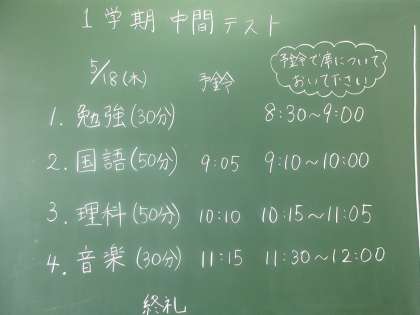 1学期 中間テスト
5/18(木) 予鈴 予鈴で席について
おいて下さい
1. 勉強(30分) 8:30~9:00
2. 国語(50分) 9:05 9:10~10:00
3. 理科(50分) 10:10 10:15~11:05
4. 音楽(30分) 11:15 11:30~12:00
終礼